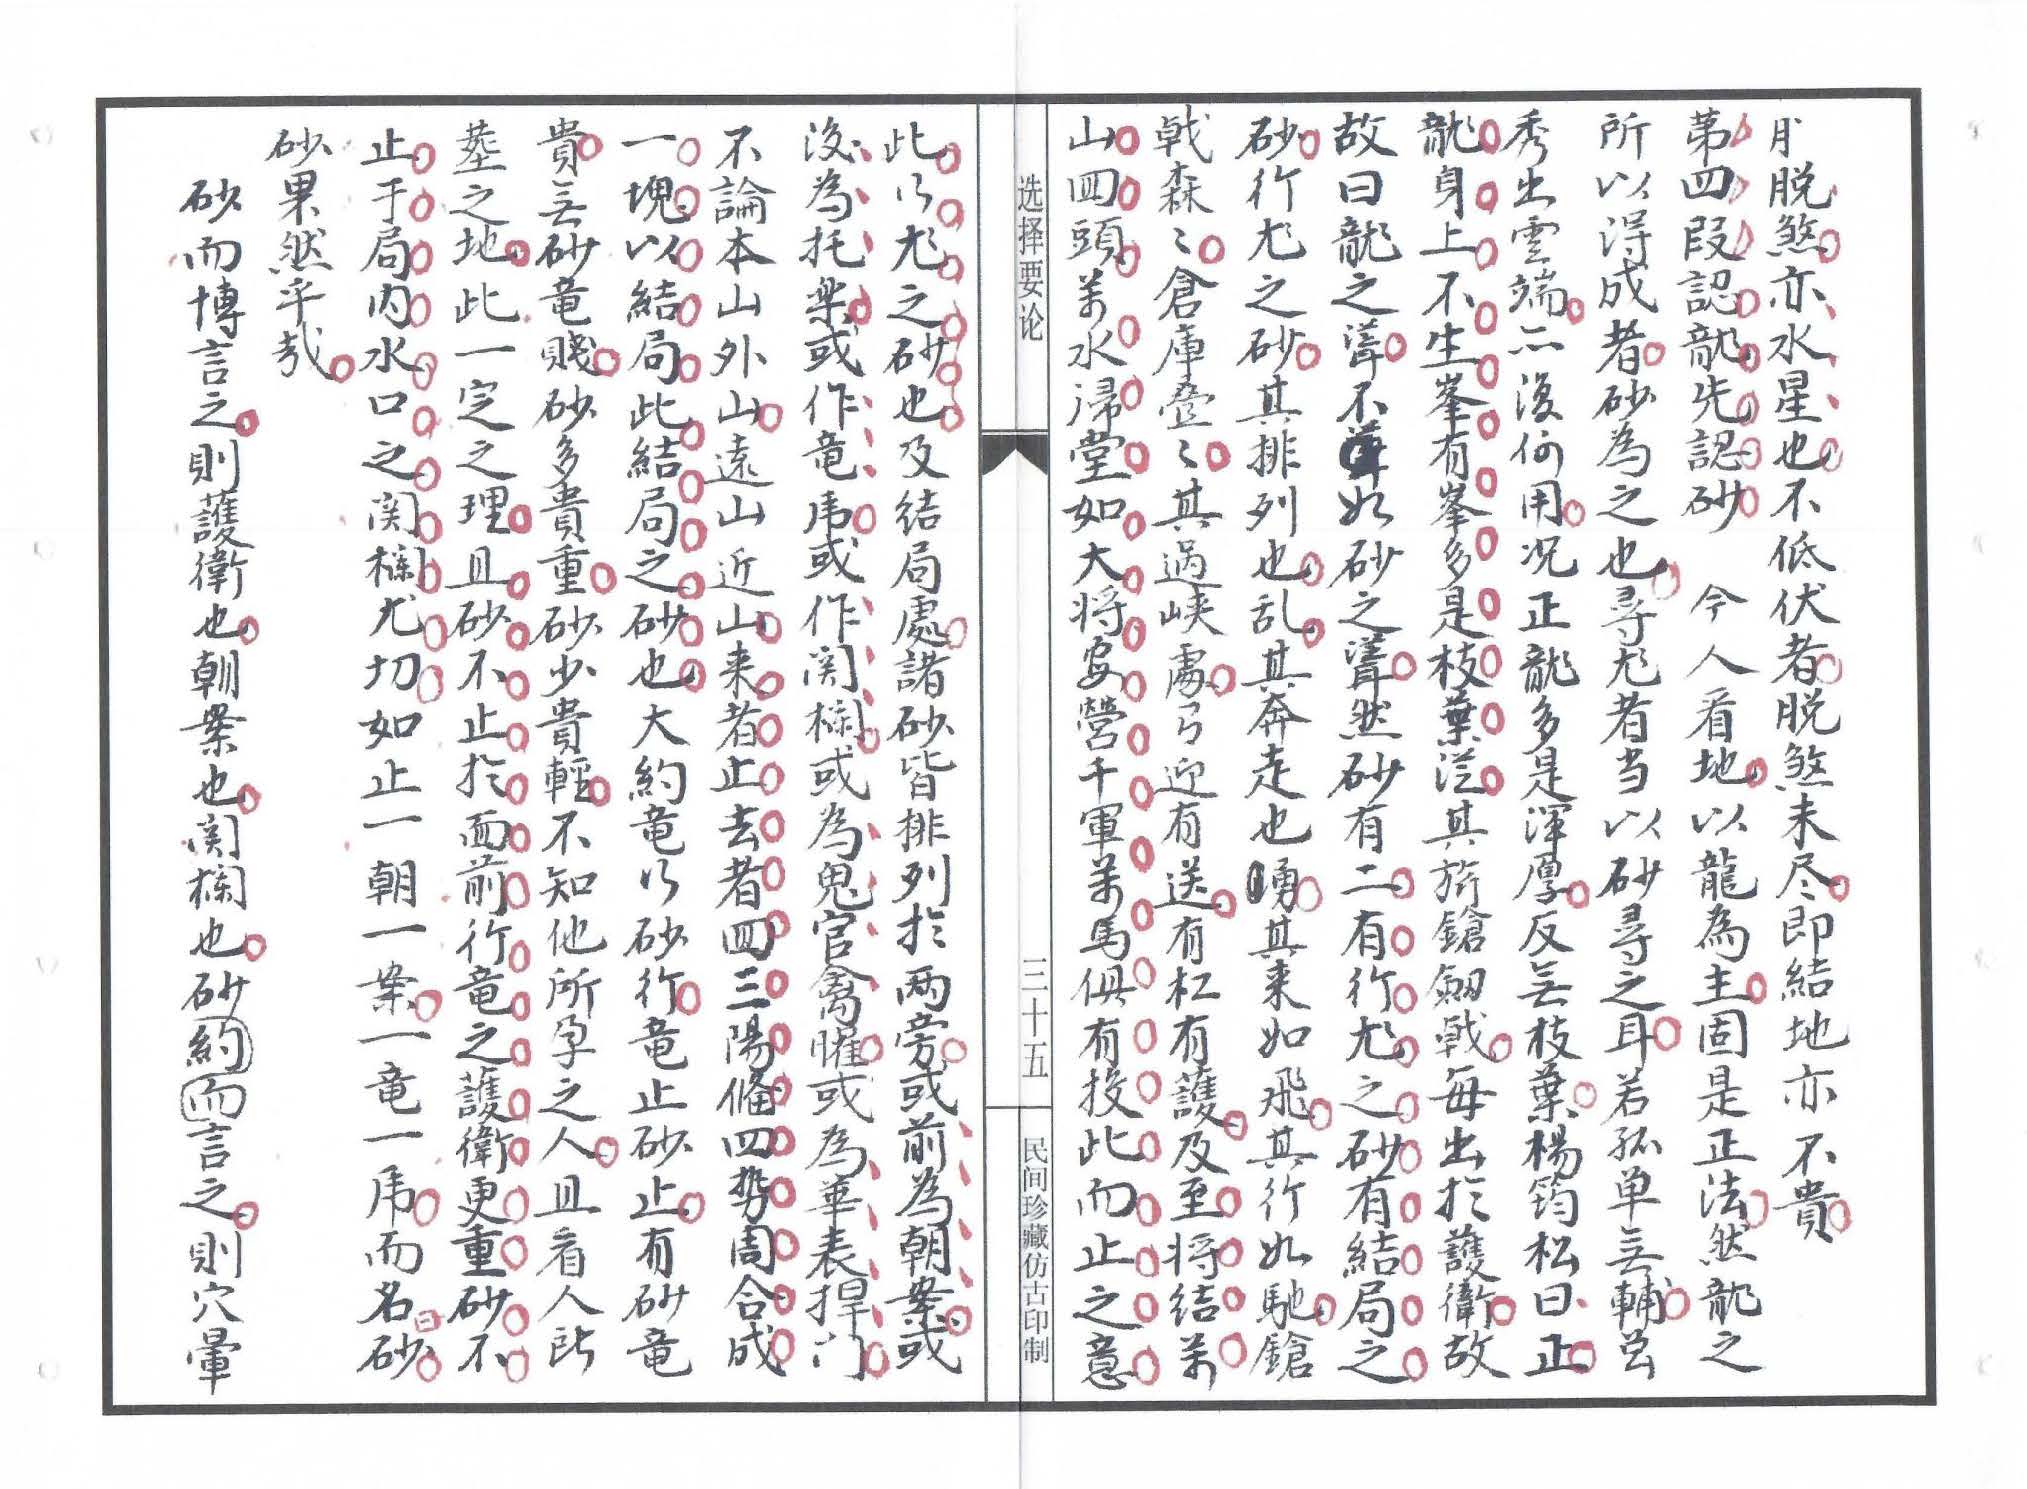 脱煞亦水星也不低伏者脱煞未尽即結地亦不貴
第四段認龍先認砂 今人看地以龍為主固是正法然龍之
所以得成者砂為之也尋龙者当以砂尋之耳若孤单無輔
秀出雲端亦復何用况正龍多是渾厚反無枝葉楊筠松曰正
龍身上不生峯有峯多是枝葉従其旂鎗劔戟每出於護衛故
故曰龍之聳不如砂之聳然砂有二有行龙之砂有結局之
砂行龙之砂其排列也乱其奔走也踴其来如飛其行如馳鎗
戟森〻倉庫叠〻其過峡處弓迎有送有杠有護及至将結萬
山回頭萬水歸堂如大将安營千軍萬馬俱有投此而止之意
选择要论
三十五
民间珍藏仿古印制
此行龙之砂也及結局處諸砂皆排列於两旁或前為朝案或
後為托楽或作竜虎或作関欄或為鬼官禽曜或為華表捍门
不論本山外山遠山近山来者止去者回三陽偹四势周合成
一塊以結局此結局之砂也大約竜行砂行竜止砂止有砂竜
貴無砂竜賤砂多貴重砂少貴輕不知他所孕之人且看人所
塟之地此一定之理且砂不止於面前行竜之護衛更重砂不
止于局内水口之関欄尤切如止一朝一案一竜一虎而名曰砂
砂果然乎哉
砂而博言之則護衛也朝案也関欄也砂約而言之則穴暈